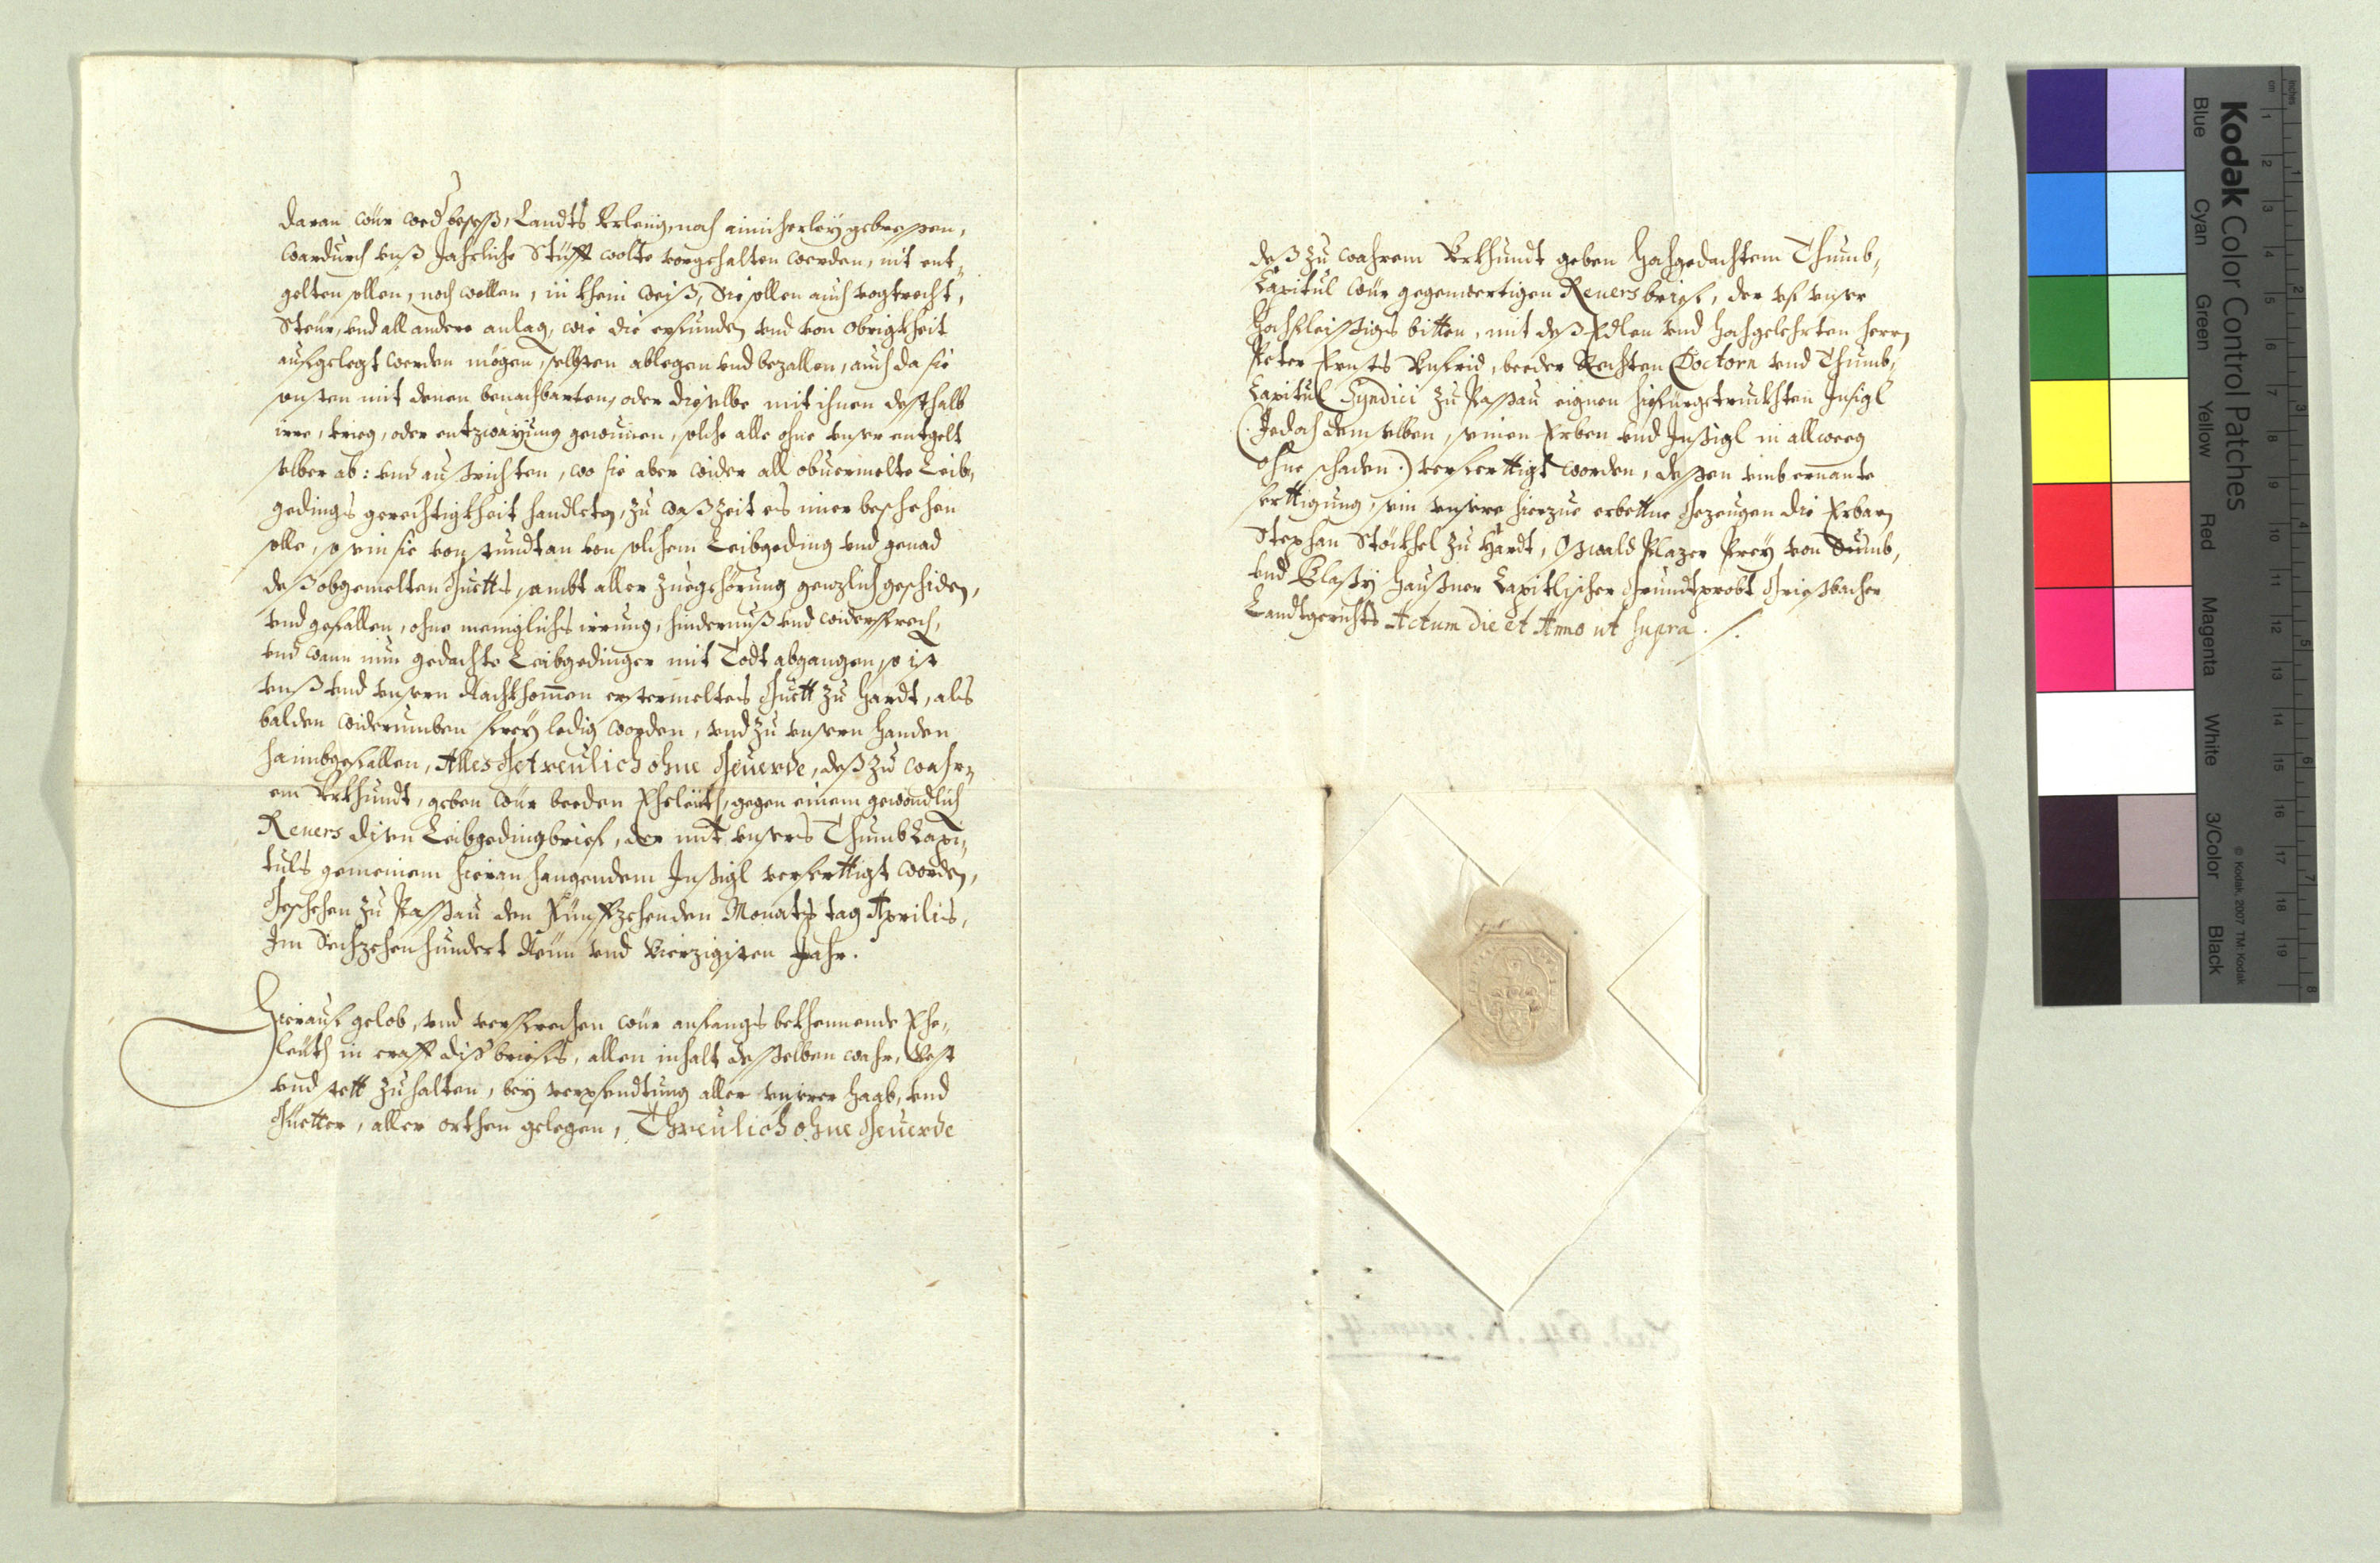 daran wür wed besess, Landts Krieg, noch ainicherley gebressen,
wardurch unß Jahrliche Stüfft wolte vorgehalten werden, nit ent-
gelten sollen, noch wollen, in kheni weiß, Sie sollen auch vogtrecht,
Steür, und all andere anlag, wie die erfunden und von obrigkheit
aufgelegt werden mögen, selbsten ablegen und bezallen, auch da sie
unsten mit denen benachbarten, oder dieselbe mit ihnen desthalb
irre, krieg, oder entzwayung gewunen, solche alle ohne unser entgelt
selber ab: und außrichten, wo sie aber wider all obuermelte Leib-
gedings gerechtigkheit handleten, zu waß zeit es imer beschehen
solle, so sein sie von stundt an von solchem Leibgeding und genad
deß obgemelten Guetts, sambt aller zuegehörung genzlich geschiden,
und gefallen, ohne meniglichs irrung, hindernuß und widersprech,
und wann nun gedachte Leibgedinger mit Todt abgangen, so ist
unß und unsern Nachkhomen erstermeltes Guett zu Hardt, als
balden widerumben frey ledig worden, und zu unsern handen
haimbgefallen, Alles Getreulich ohne Geuerde, deß zu wahr-
em Urkhundt, geben wür beeden Eheleüth, gegen einem gewöndlich
Reuers disen Leibgedingbrief, der mit unsers Thumb Capi-
tuls gemeinem hieran hangendem Insigl verferttigt worden,
Geschehen zu Passau den Fünffzehenden Monats tag Aprilis,
Im Sechzehenhundert Neün und Vierzigisten Jahr.
Hierauf gelob, und versprechen wür anfangs bekhennende Ehe-
leüth in crafft diß briefs, allen inhalt desselben wahr, Vest
und stett zuhalten, bey verpfendtung aller unserer Haab, und
Güetter, aller orthen gelegen, Threulich ohne Geuerde
deß zu wahrem Urkhundt geben Hochgedachtem Thumb-
Capitul wür gegenwertigen Reuersbrief, der uf unser
Hochfleissigs bitten, mit deß Edlen und Hochgelehrten Herrn
Peter Ernsts, beeder Rechten Doctorn und Thumb-
Capitul Syndici zu Passau eignen hiefürgetruckhten Insigl
(: Jedoch demselben, seinen Erben und Insigl in allweeg
ohne schaden :) verferttigt worden, dessen umb ernante
ferttigung, sein unsere hierzue erbettne Gezeugen die Erbarn
Stephan Stöckhel zu Hardt, Oswald Plazer Prey von Seumb,
und Blasy Haußner Capitlischer Grundtprobt Grießbacher
Landtgerichts Actum die et Anno ut supra ./.
Kodak Color Control Patches
Blue Cyan Green Yellow Red Magenta White 3/Color Black
© Kodak, 2007 TM: Kodak
inches 1 2 3 4 5 6 7 8
cm 1 2 3 4 5 6 7 8 9 10 11 12 13 14 15 16 17 18 19